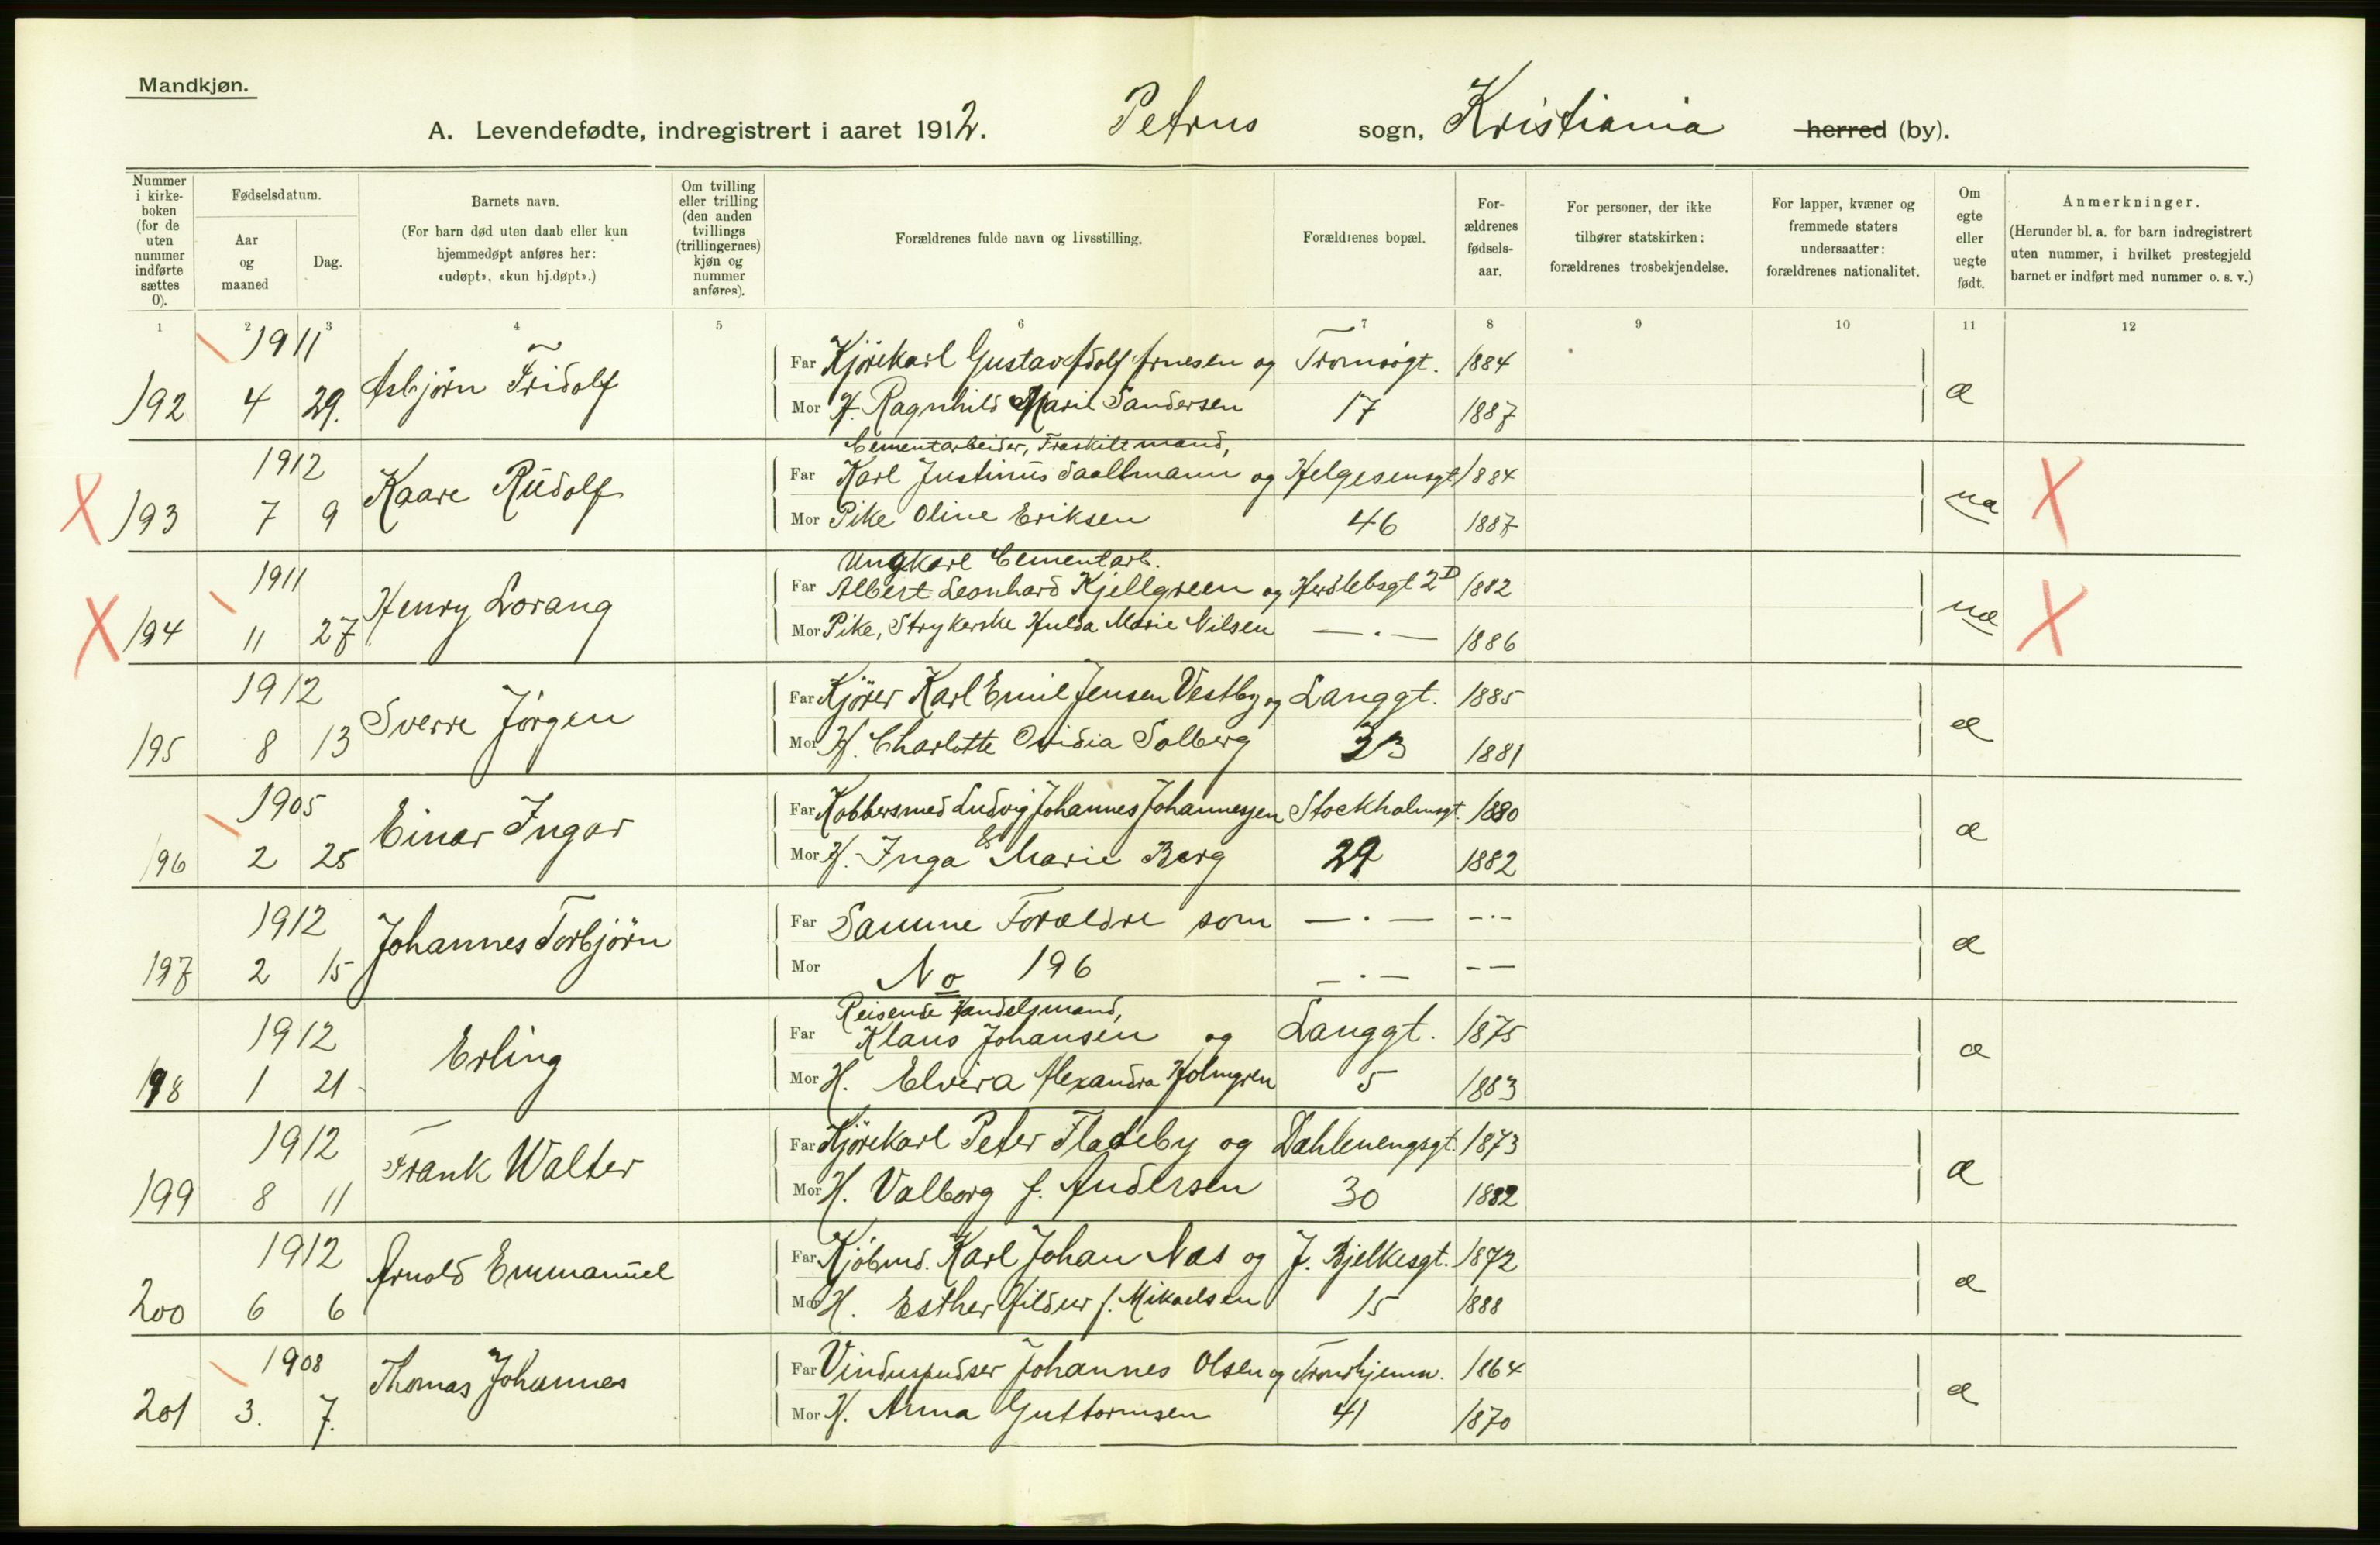 Mandkjøn.
A. Levendefødte, indregistrert i aaret 1912. Petrus sogn, Kristiania herred (by).
Nummer i kirke-boken (for de uten nummer indførte sættes 0).
Fødselsdatum.
Aar og maaned
Dag.
Barnets navn.
(For barn død uten daab eller kun hjemmedøpt anføres her: «udøpt», «kun hj.døpt».)
Om tvilling eller trilling (den anden tvillings (trillingernes) kjøn og nummer anføres).
Forældrenes fulde navn og livsstilling.
Forældrenes bopæl.
For-ældrenes fødsels-aar.
For personer, der ikke tilhører statskirken: forældrenes trosbekjendelse.
For lapper, kvæner og fremmede staters undersaatter: forældrenes nationalitet.
Om egte eller uegte født.
Anmerkninger.
(Herunder bl. a. for barn indregistrert uten nummer, i hvilket prestegjeld barnet er indført med nummer o. s. v.)
1 2 3 4 5 6 7 8 9 10 11 12
1911
Far Kjørekarl Gustav Adolf Arnesen og Tromsøgt. 1884
192 4 29. Asbjørn Fridolf æ
Mor H. Ragnhild Marie Sandersen 17 1887
Cementarbeider, Fraskilt mand,
1912
Far Karl Justinus Saaltmann og Helgesensgt 1884
X 193 7 9 Kaare Rudolf uæ X
Mor Pike Oline Eriksen 46 1887
Ungkarl Cementarb.
1911
Far Albert Leonhard Kjellgreen og Herslebsgt 2D 1882
X 194 11 27 Henry Lorang uæ X
Mor Pike, Strykerske Hulda Marie Nilsen — . — 1886
1912
Far Kjører Karl Emil Jensen Vestby og Langgt. 1885
195 8 13 Sverre Jørgen æ
Mor H. Charlotte Ovidia Solberg 33 1881
1905
Far Kobbersmed Ludvig Johannes Johannesen Stockholmsgt. 1880
196 2 25 Einar Ingar æ
Mor H. Inga E Marie Berg 29 1882
1912
Far Samme Forældre som — . — - . -
197 2 15 Johannes Torbjørn æ
Mor No 196 — . — - -
Reisende Handelsmand,
1912
Far Klaus Johansen og Langgt. 1875
198 1 21 Erling æ
Mor H. Elvira Alexandra Holmgren 5 1883
1912
Far Kjørekarl Peter Fladeby og Dahlenengsgt. 1873
199 8 11 Frank Walter æ
Mor H. Valborg f. Andersen 30 1882
1912
Far Kjøbmd. Karl Johan Næs og J. Bjelkesgt. 1872
200 6 6 Arnold Emmanuel æ
Mor H. Esther Hildur f. Mikaelsen 15 1888
1908
Far Vinduspudser Johannes Olsen og Trondhjemsv. 1864
201 3. 7. Thomas Johannes æ
Mor H. Anna Guttormsen 41 1870